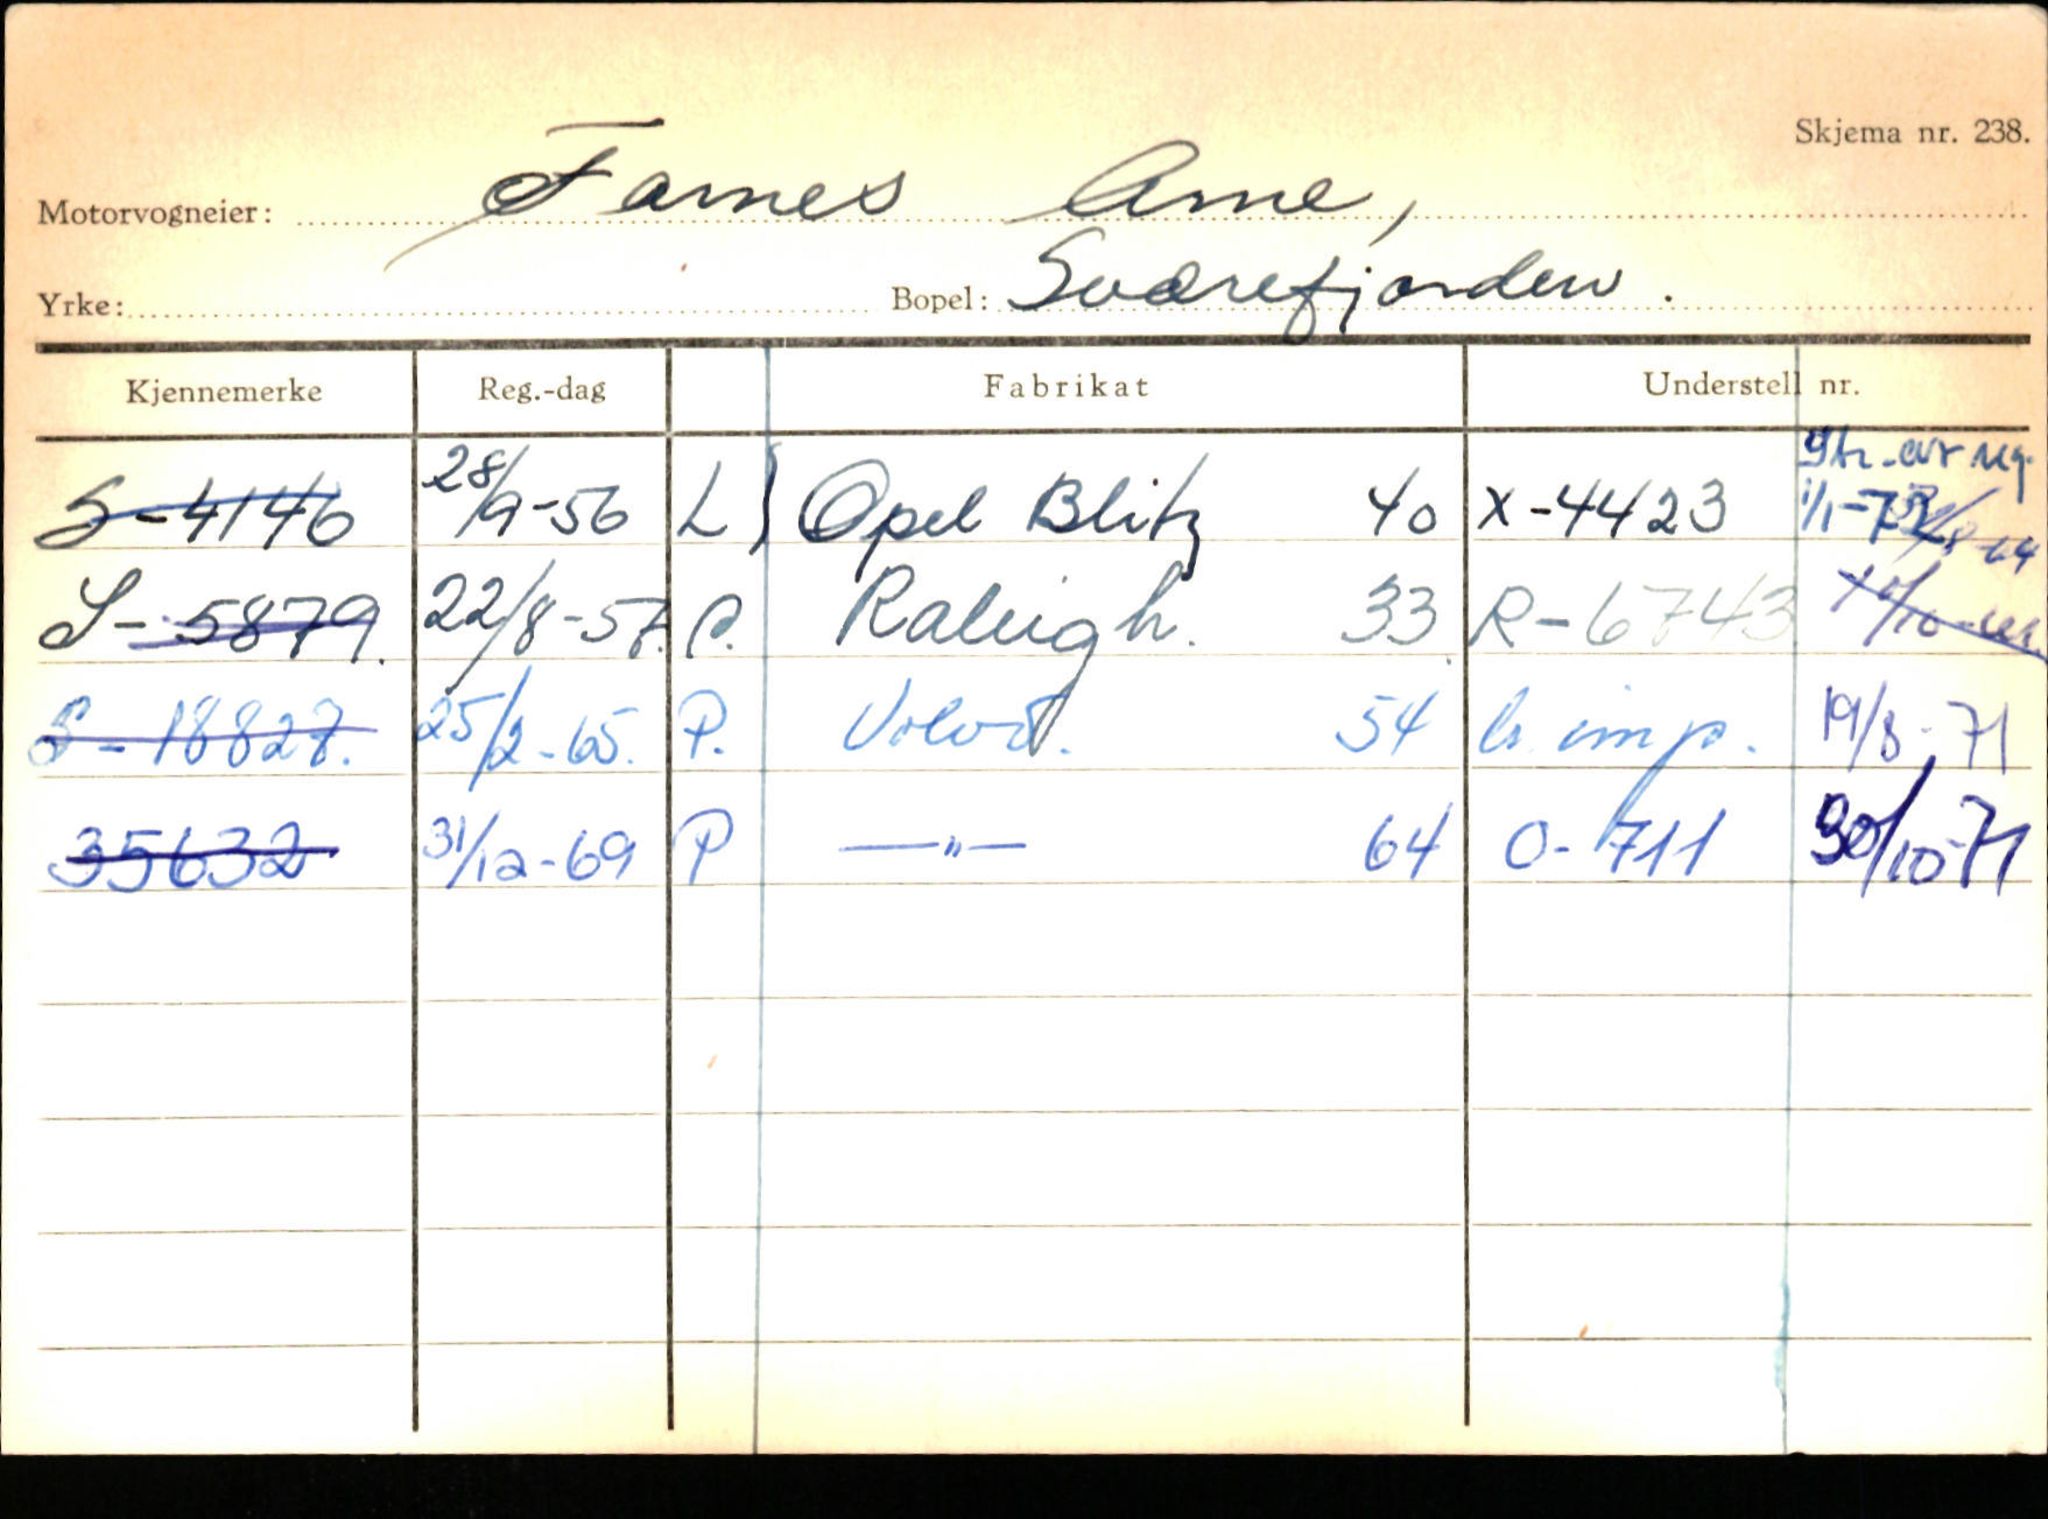 Skjema nr. 238.
Motorvogneier: Farnes Arne,
Yrke: Bopel: Sværefjorden.
Kjennemerke Reg.-dag Fabrikat Understell nr.
S-4146 28/9-56 L) Opel Blitz 40 X-4423 1/1-72
S-5879. 22/8-57. P. Raleigh. 33 R-6743
S-18827. 25/2-65. P. Volvo. 54 imp. 19/8-71
35632 31/12-69 P —"— 64 0-711 30/10-71